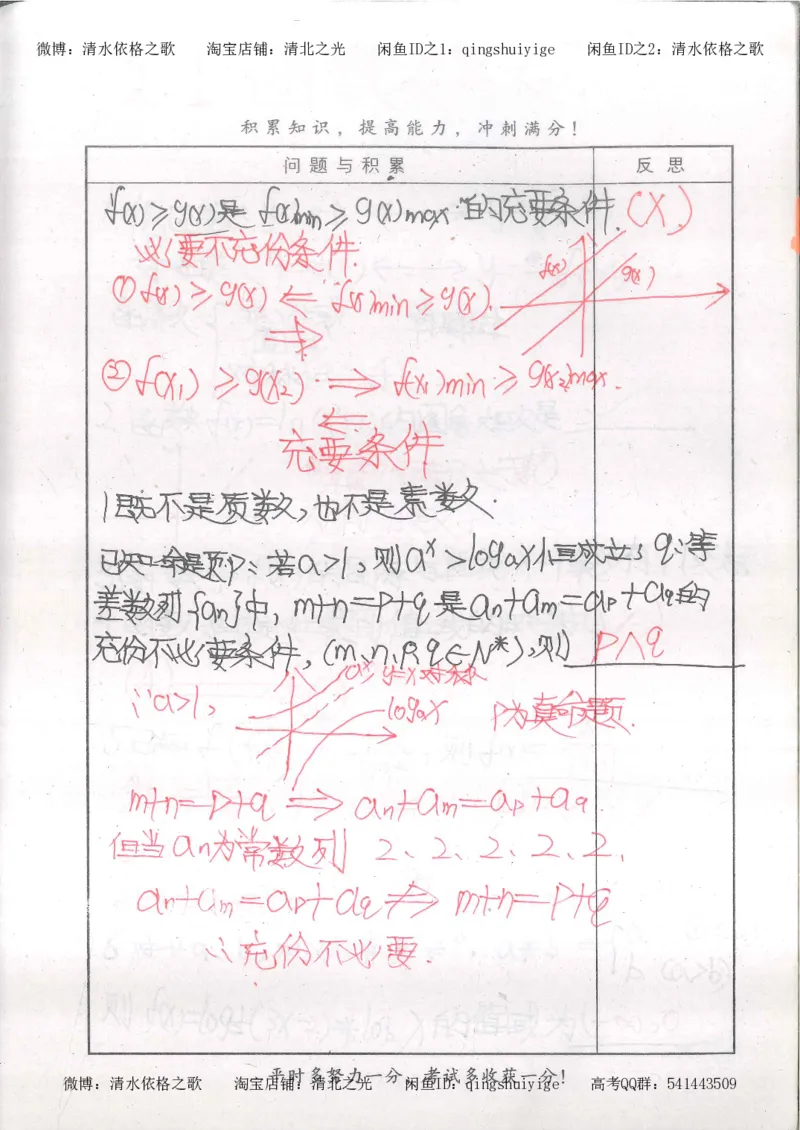 微博：清水依格之歌 淘宝店铺：清北之光 闲鱼ID之1：qingshuiyige 闲鱼ID之2：清水依格之歌
积累知识，提高能力，冲刺满分！
问题与积累 反思
f(x)≥g(x)是 f(x)min≥g(x)max"的充要条件.（X）
必要不充份条件.
①f(x)≥g(x) ⇐ f(x)min≥g(x).
⇒
f(x) g(x)
②f(x₁)≥g(x₂) ⇒ f(x₁)min≥g(x₂)max.
⇐
充要条件
1既不是质数，也不是素数.
已知一命题p：若a>1，则aˣ>logₐx恒成立；q：等
差数列{an}中，m+n=p+q是an+am=ap+aq的
充份不必要条件，(m,n,p,q∈N*)，则 p∧q
∵a>1， aˣ y=x对称 logₐx p为真命题.
m+n=p+q ⇒ an+am=ap+aq.
但当an为常数列 2、2、2、2、2，
an+am=ap+aq ⇏ m+n=p+q
∴充份不必要.
平时多努力一分，考试多收获一分！
微博：清水依格之歌 淘宝店铺：清北之光 闲鱼ID：qingshuiyige 高考QQ群：541443509